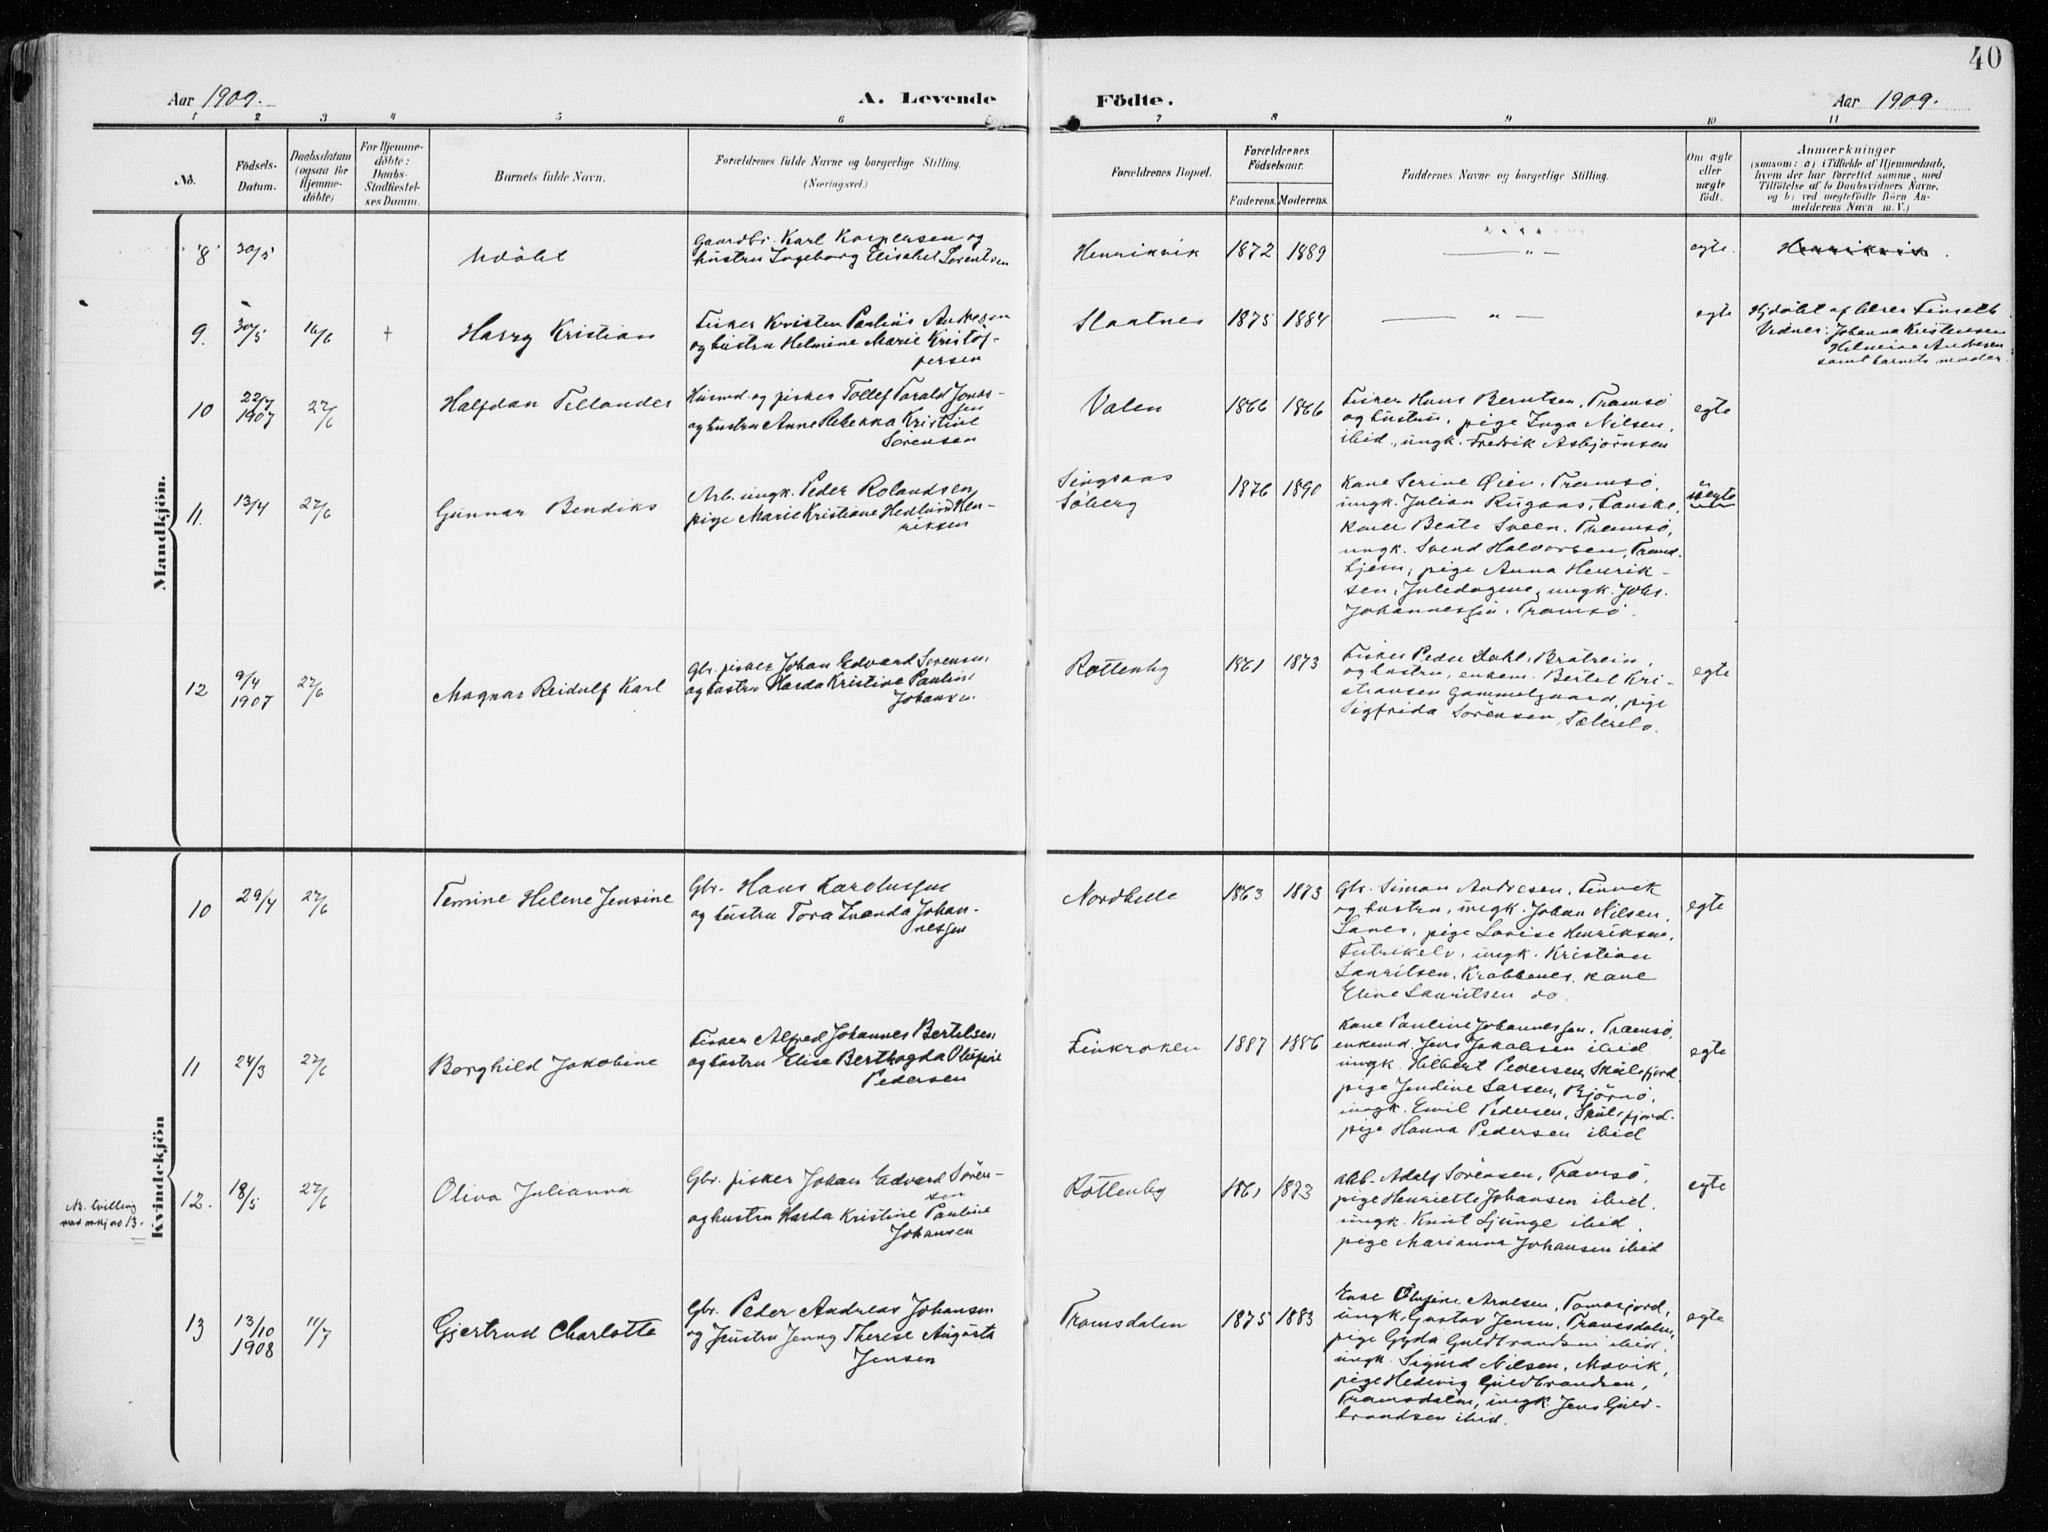 40
Aar 1909.
A. Levende
Födte.
Aar 1909.
1 2 3 4 5 6
7 8 9 10 11
No.
Födsels-
Datum.
Daabsdatum
(ogsaa for
Hjemme-
döbte)
For Hjemme-
döbte:
Daabs-
Stadfæstel-
ses Datum.
Barnets fulde Navn.
Forældrenes fulde Navne og borgerlige Stilling.
(Næringsvei.)
Forældrenes Bopæl.
Forældrenes
Födselsaar.
Faderens. Moderens.
Faddernes Navne og borgerlige Stilling.
Om ægte
eller
uægte
födt.
Anmærkninger
(saasom: a) i Tilfælde af Hjemmedaab,
hvem der har forrettet samme, med
Tilföielse af to Daabsvidners Navne.
og b) ved uegtefödte Börn An-
melderens Navn m. V.)
Mandkjön.
8 30/5 Udöbt
Gaardbr. Karl Kaspersen og
hustru Ingeborg Elisabet Lorentsen
Henrikvik 1872 1889 — " — egte Henrikvik
9. 30/5 16/6 + Harry Kristian
Fisker Kristen Paulus Andresen
og hustru Helmine Marie Kristof-
fersen
Slaatnes 1875 1884 — " — egte
Hjdöbt af lærer Finseth
Vidner: Johanna Kristensen
Helmina Andresen
samt barnets moder
10 22/7 1907 27/6 Halfdan Tellander
Husmd. og fisker Tollef Tarald Jonas-
sen
og hustru Anne Rebekka Kristine
Sörensen
Valen 1866 1866
Fisker Hans Berntsen, Tromsö
og hustru, pige Inga Nilsen,
ibid., ungk. Fredrik Asbjörnsen
egte
11. 13/4 27/6 Gunnar Bendiks
Arb. ungk. Peder Rolandsen,
pige Marie Kristiane Hedlund Hen-
riksen
Singsaas
Söberg
1876 1890
Kone Serine Öien, Tromsö,
ungk. Julian Rugaas, Fauske,
Kone Beate Sveen, Tromsö,
ungk. Svend Halvorsen, Trond-
hjem, pige Anna Henrik-
sen, ungk. Johs.
Johannessen, Tromsö.
uegte
12 9/4 1907 27/6 Magnar Reidulf Karl
Gbr. fisker Johan Edvard Sörensen,
og hustru Harda Kristine Pauline
Johansen.
Rottenby 1861 1873
Fisker Peder Dahl, Bratrein,
og hustru, enkem. Bertel Kri-
stiansen Gammelgaard, pige
Sigfrida Sörensen,
egte
Kvindekjön
10 29/4 27/6 Temine Helene Jensine
Gbr. Hans Karolussen
og hustru Tora Johan-
nessen
Nordbelle 1863 1873
Gbr. Simon Andresen, Finvik
og hustru, ungk. Johan Nilsen,
Sanes, pige Lovise Henriksen,
Futrikelv, ungk. Kristian
Lauritsen, Krabbenes, kone
Eline Lauritsen do.
egte
11 24/3 27/6 Borghild Jakobine
Fisker Alfred Johannes Bertelsen
og hustru Elise Berthogda Olufine
Pedersen
Finkroken 1887 1886
Kone Pauline Johannessen, Tromsö,
enkemd. Jens Jakobsen ibid
ungk. Hilbert Pedersen, Skulsfjord,
pige Jendine Larsen, Björnö,
ungk. Emil Pedersen, Skulsfjord.
pige Hanna Pedersen ibid
egte
NB. tvilling
med
no 13.
12. 18/5 27/6 Oliva Julianna
Gbr. fisker Johan Edvard Sören-
sen
og hustru Harda Kristine Pauline
Johansen
Rottenby 1861 1873
Arb. Adolf Sörensen, Tromsö,
pige Henriette Johansen ibid.
ungk. Knut Ljunge ibid.
pige Marianna Johansen ibid
egte
13 13/10 1908 11/7 Gjertrud Charlotte
Gbr. Peder Andreas Johansen
og Hustru Jenny Therese Augusta
Jensen
Tromsdalen 1875 1883
Enke Olufine Arntsen, Tomasjord,
ungk. Gustav Jensen, Tromsdalen,
pige Gyda Guldbrandsen ibid,
ungk. Sigurd Nilsen, Movik,
pige Hedevig Guldbrandsen,
Tromsdalen, ungk. Jens Guld-
brandsen ibid.
egte